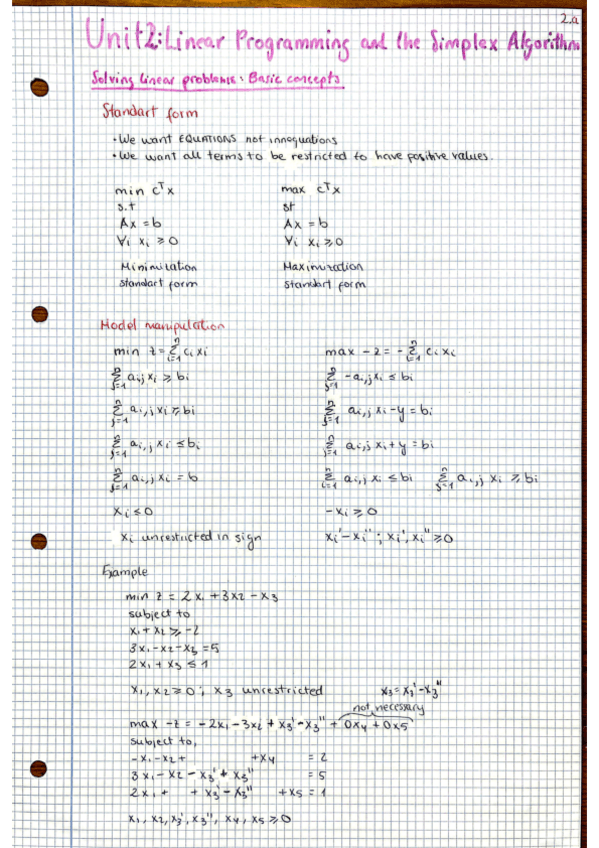 2.a
Unit 2: Linear Programming and the Simplex Algorithm
Solving linear problems: Basic concepts
Standart form
· We want EQUATIONS not innequations
· We want all terms to be restricted to have positive values.
min cᵀx    max cᵀx
s.t    st
Ax = b    Ax = b
∀i xi ≥ 0    ∀i xi ≥ 0
Minimization    Maximization
standart form    standart form
Model manipulation
min z = Σ_{i=1}^{n} ci xi    max -z = - Σ_{i=1}^{n} ci xi
Σ_{j=1}^{n} ai,j xi ≥ bi    Σ_{j=1}^{n} -ai,j xi ≤ bi
Σ_{j=1}^{n} ai,j xi ≥ bi    Σ_{j=1}^{n} ai,j xi - y = bi
Σ_{j=1}^{n} ai,j xi ≤ bi    Σ_{j=1}^{n} ai,j xi + y = bi
Σ_{j=1}^{n} ai,j xi = b    Σ_{i=1}^{n} ai,j xi ≤ bi    Σ_{j=1}^{n} ai,j xi ≥ bi
xi ≤ 0    -xi ≥ 0
xi unrestricted in sign    xi' - xi'' ; xi', xi'' ≥ 0
Example
min z = 2x1 + 3x2 - x3
subject to
x1 + x2 ≥ -2
3x1 - x2 - x3 = 5
2x1 + x3 ≤ 1
x1, x2 ≥ 0 ; x3 unrestricted    x3 = x3' - x3''
not necessary
max -z = -2x1 - 3x2 + x3' - x3'' + 0x4 + 0x5
subject to,
-x1 - x2 +    + x4    = 2
3x1 - x2 - x3' + x3''    = 5
2x1 +    + x3' - x3''    + x5 = 1
x1, x2, x3', x3'', x4, x5 ≥ 0